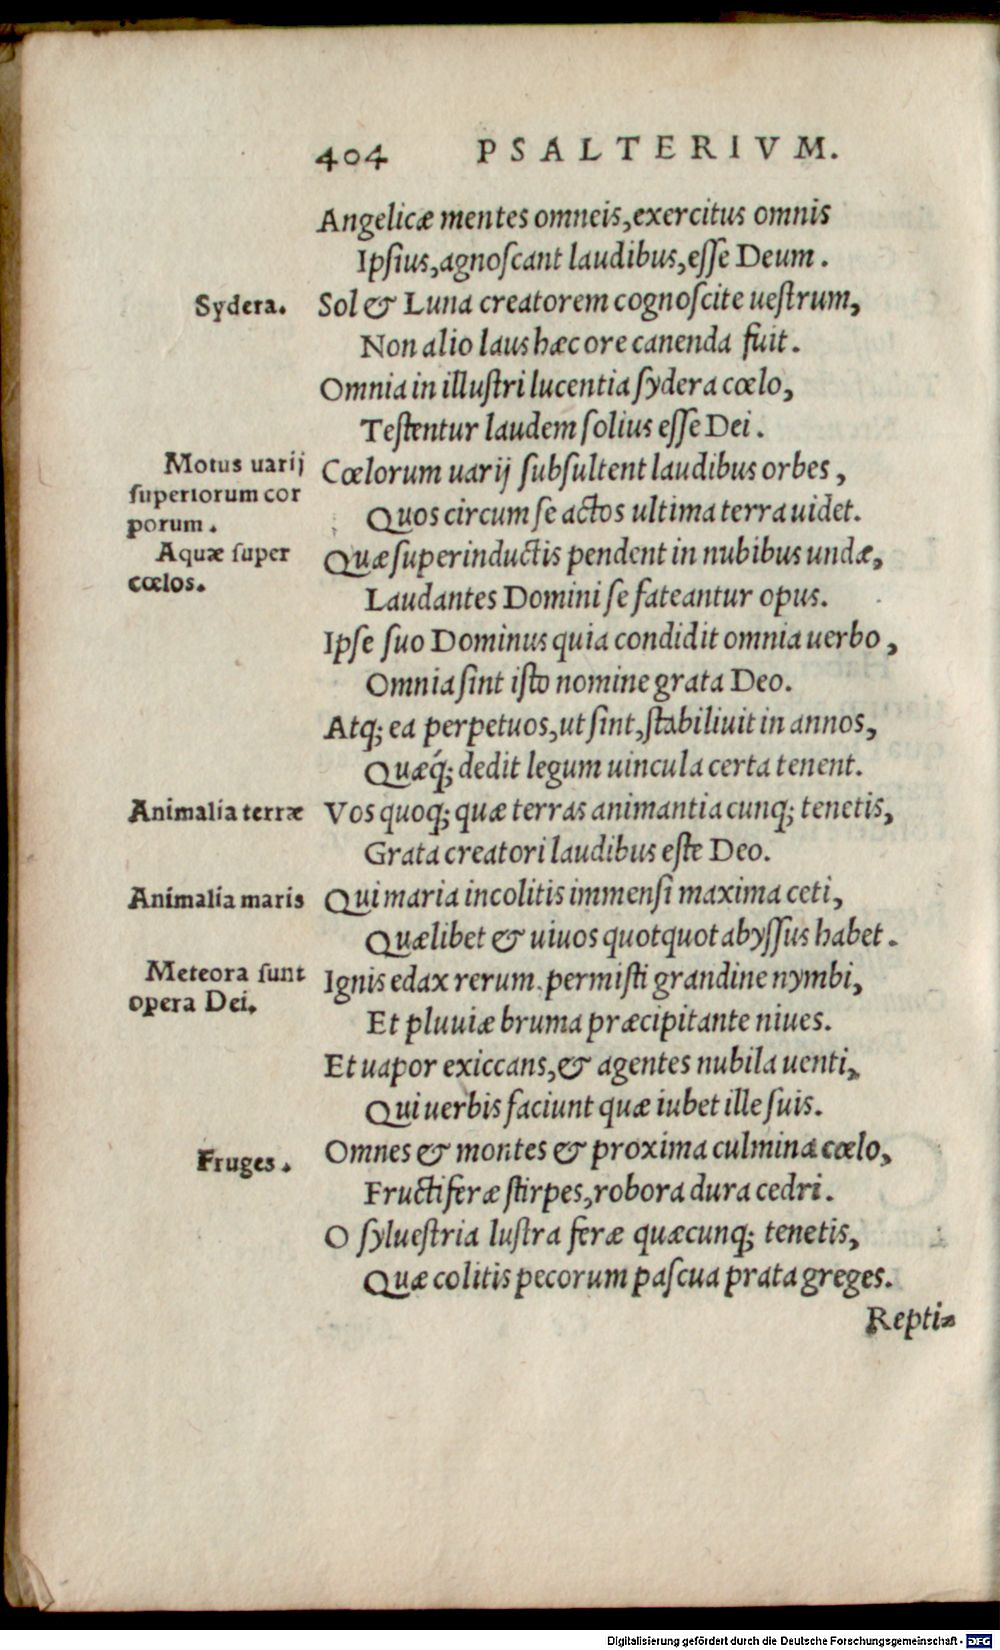 404 PSALTERIVM.
Angelicæ mentes omneis, exercitus omnis
Ipsius, agnoſcant laudibus, eſſe Deum.
Sydera.
Sol & Luna creatorem cognoſcite ueſtrum,
Non alio laus hæc ore canenda fuit.
Omnia in illuſtri lucentia ſydera cœlo,
Teſtentur laudem ſolius eſſe Dei.
Motus uarij
ſuperiorum cor
porum.
Cœlorum uarij ſubſultent laudibus orbes,
Quos circum ſe actos ultima terra uidet.
Aquæ ſuper
cœlos.
Quæ ſuperinductis pendent in nubibus undæ,
Laudantes Domini ſe fateantur opus.
Ipſe ſuo Dominus quia condidit omnia uerbo,
Omnia ſint iſto nomine grata Deo.
Atq; ea perpetuos, ut ſint, ſtabiliuit in annos,
Quæq́; dedit legum uincula certa tenent.
Animalia terræ
Vos quoq; quæ terras animantia cunq; tenetis,
Grata creatori laudibus eſte Deo.
Animalia maris
Qui maria incolitis immenſi maxima ceti,
Quælibet & uiuos quotquot abyſſus habet.
Meteora ſunt
opera Dei.
Ignis edax rerum. permiſti grandine nymbi,
Et pluuiæ bruma præcipitante niues.
Et uapor exiccans, & agentes nubila uenti,
Qui uerbis faciunt quæ iubet ille ſuis.
Fruges.
Omnes & montes & proxima culmina cœlo,
Fructiferæ ſtirpes, robora dura cedri.
O ſylueſtria luſtra feræ quæcunq; tenetis,
Quæ colitis pecorum paſcua prata greges.
Repti⸗
Digitalisierung gefördert durch die Deutsche Forschungsgemeinschaft - DFG